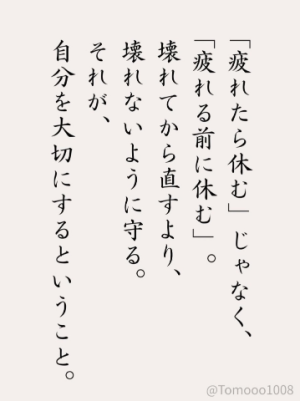 「疲れたら休む」じゃなく、
「疲れる前に休む」。
壊れてから直すより、
壊れないように守る。
それが、
自分を大切にするということ。
@Tomooo1008